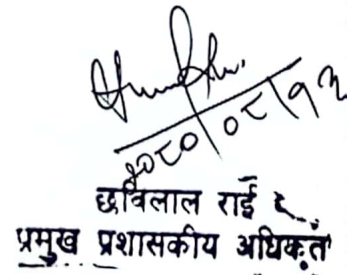 २०८०/०८/१३
छविलाल राई
प्रमुख प्रशासकीय अधिकृत